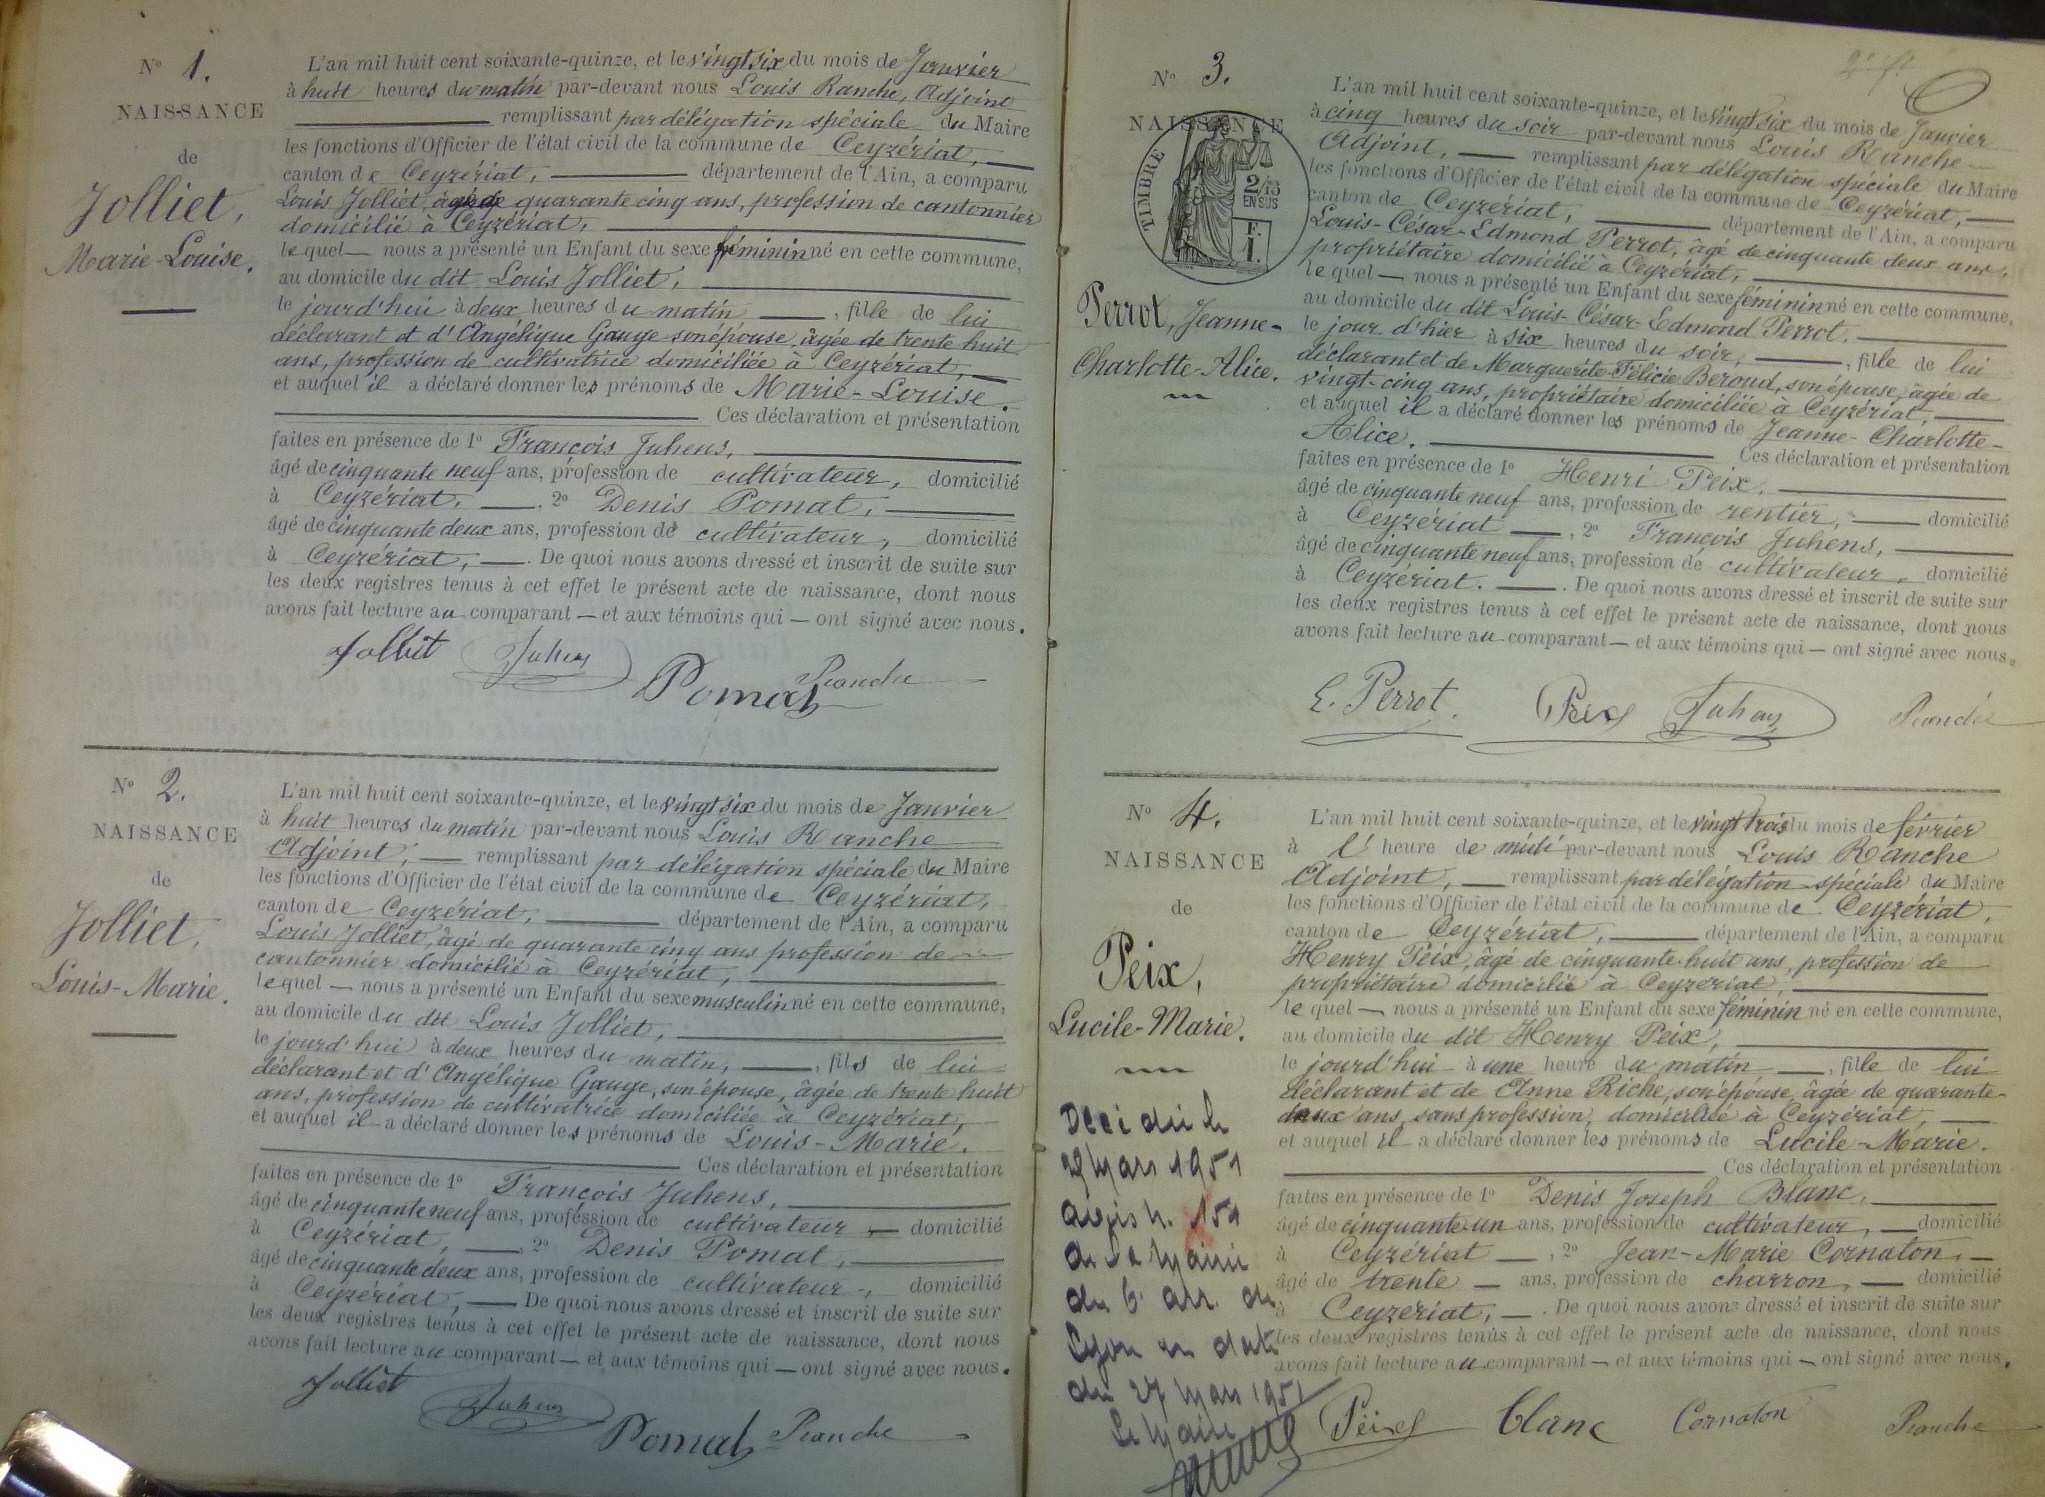 N° 1.
NAISSANCE
de
Jolliet,
Marie-Louise.
L'an mil huit cent soixante-quinze, et le vingt six du mois de Janvier
à huit heures du matin par-devant nous Louis Ranche, Adjoint
remplissant par délégation spéciale du Maire
les fonctions d'Officier de l'état civil de la commune de Ceyzériat,
canton de Ceyzériat, département de l'Ain, a comparu
Louis Jolliet, âgé de quarante cinq ans, profession de cantonnier
domicilié à Ceyzériat,
lequel nous a présenté un Enfant du sexe féminin né en cette commune,
au domicile du dit Louis Jolliet,
le jourd'hui à deux heures du matin, fille de lui
déclarant et d'Angélique Gauge son épouse, âgée de trente huit
ans, profession de cultivatrice domiciliée à Ceyzériat,
et auquel il a déclaré donner les prénoms de Marie-Louise.
Ces déclaration et présentation
faites en présence de 1° François Juhens,
âgé de cinquante neuf ans, profession de cultivateur, domicilié
à Ceyzériat, 2° Denis Pomat,
âgé de cinquante deux ans, profession de cultivateur, domicilié
à Ceyzériat, De quoi nous avons dressé et inscrit de suite sur
les deux registres tenus à cet effet le présent acte de naissance, dont nous
avons fait lecture au comparant — et aux témoins qui — ont signé avec nous.
Jolliet Juhens
Pomat Ranche
N° 2.
NAISSANCE
de
Jolliet,
Louis-Marie.
L'an mil huit cent soixante-quinze, et le vingt six du mois de Janvier
à huit heures du matin par-devant nous Louis Ranche
Adjoint, remplissant par délégation spéciale du Maire
les fonctions d'Officier de l'état civil de la commune de Ceyzériat,
canton de Ceyzériat, département de l'Ain, a comparu
Louis Jolliet, âgé de quarante cinq ans profession de
cantonnier domicilié à Ceyzériat,
lequel — nous a présenté un Enfant du sexe musculin né en cette commune,
au domicile du dit Louis Jolliet,
le jourd'hui à deux heures du matin, fils de lui
déclarant et d'Angélique Gauge, son épouse, âgée de trente huit
ans, profession de cultivatrice domiciliée à Ceyzériat,
et auquel il a déclaré donner les prénoms de Louis-Marie.
Ces déclaration et présentation
faites en présence de 1° François Juhens,
âgé de cinquante neuf ans, profession de cultivateur, domicilié
à Ceyzériat, 2° Denis Pomat,
âgé de cinquante deux ans, profession de cultivateur, domicilié
à Ceyzériat, De quoi nous avons dressé et inscrit de suite sur
les deux registres tenus à cet effet le présent acte de naissance, dont nous
avons fait lecture au comparant — et aux témoins qui — ont signé avec nous.
Jolliet
Juhens
Pomat Ranche
N° 3.
NAISSANCE
TIMBRE
2/10
EN SUS
F.
1.
Perrot, Jeanne-
Charlotte-Alice.
L'an mil huit cent soixante-quinze, et le vingt six du mois de Janvier
à cinq heures du soir par-devant nous Louis Ranche
Adjoint, remplissant par délégation spéciale du Maire
les fonctions d'Officier de l'état civil de la commune de Ceyzériat,
canton de Ceyzériat, département de l'Ain, a comparu
Louis-César-Edmond Perrot, âgé de cinquante deux ans,
propriétaire domicilié à Ceyzériat,
lequel — nous a présenté un Enfant du sexe féminin né en cette commune,
au domicile du dit Louis-César-Edmond Perrot.
le jour d'hier à six heures du soir, fille de lui
déclarant et de Marguerite-Félicie Beroud, son épouse, âgée de
vingt-cinq ans, propriétaire domiciliée à Ceyzériat,
et auquel il a déclaré donner les prénoms de Jeanne-Charlotte-
Alice. Ces déclaration et présentation
faites en présence de 1° Henri Peix,
âgé de cinquante neuf ans, profession de rentier, domicilié
à Ceyzériat, 2° François Juhens,
âgé de cinquante neuf ans, profession de cultivateur, domicilié
à Ceyzériat. De quoi nous avons dressé et inscrit de suite sur
les deux registres tenus à cet effet le présent acte de naissance, dont nous
avons fait lecture au comparant — et aux témoins qui — ont signé avec nous.
E. Perrot. Peix Juhens Ranche
N° 4.
NAISSANCE
de
Peix,
Lucile-Marie.
Décédée le
28 Mars 1951
de la Mairie
du 6e arr. de
Lyon en date
du 27 Mars 1951
Le Maire
L'an mil huit cent soixante-quinze, et le vingt trois du mois de février
à l' heure de midi par-devant nous Louis Ranche
Adjoint, remplissant par délégation spéciale du Maire
les fonctions d'Officier de l'état civil de la commune de Ceyzériat,
canton de Ceyzériat, département de l'Ain, a comparu
Henry Peix, âgé de cinquante-huit ans, profession de
propriétaire domicilié à Ceyzériat.
lequel — nous a présenté un Enfant du sexe féminin né en cette commune,
au domicile du dit Henry Peix,
le jourd'hui à une heure du matin, fille de lui
déclarant et de Anne Riche, son épouse, âgée de quarante-
deux ans, sans profession, domiciliée à Ceyzériat,
et auquel il a déclaré donner les prénoms de Lucile-Marie.
Ces déclaration et présentation
faites en présence de 1° Denis Joseph Blanc,
âgé de cinquante-un ans, profession de cultivateur, domicilié
à Ceyzériat, 2° Jean-Marie Cornaton,
âgé de trente ans, profession de charron, domicilié
à Ceyzériat, De quoi nous avons dressé et inscrit de suite sur
les deux registres tenus à cet effet le présent acte de naissance, dont nous
avons fait lecture au comparant — et aux témoins qui — ont signé avec nous.
Peix blanc Cornaton Ranche